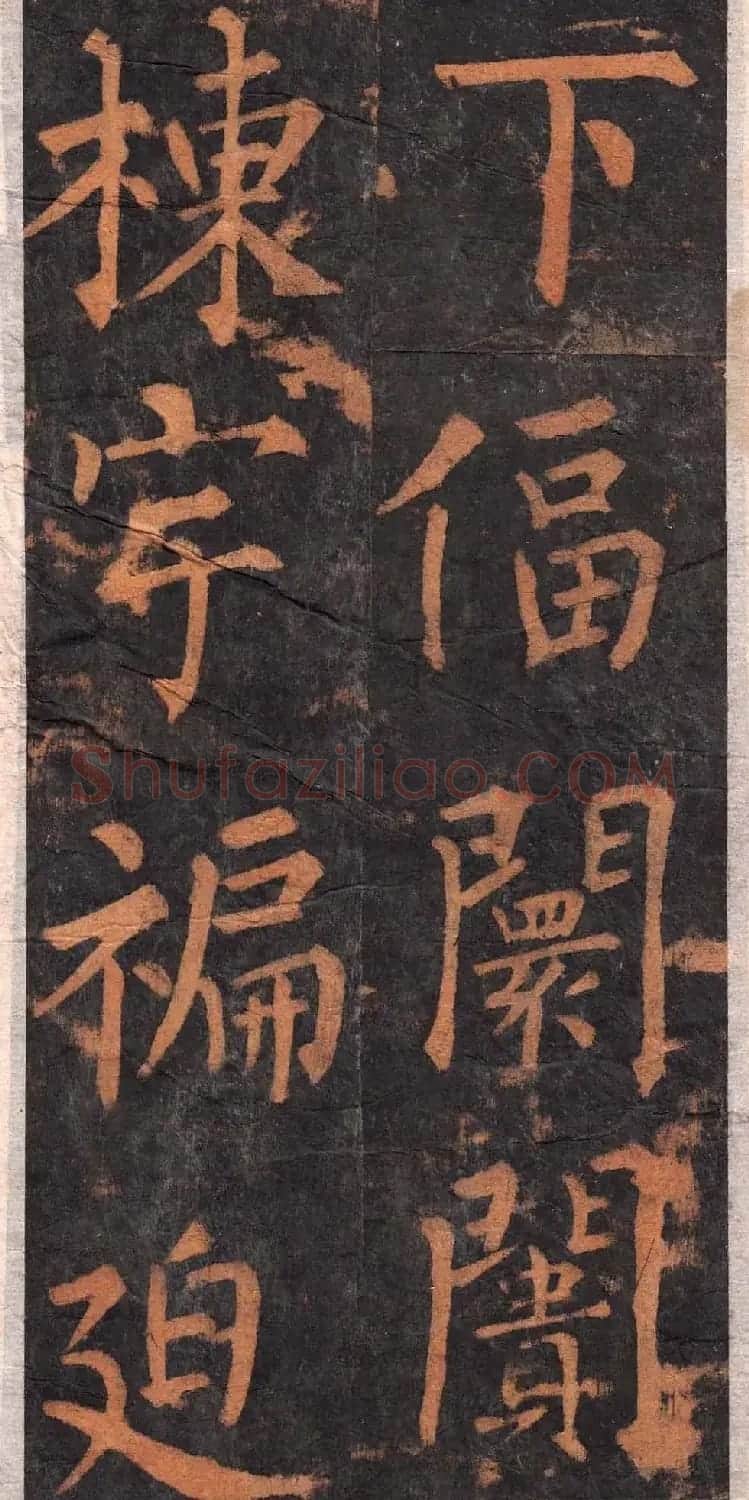 下偪闤闠
棟宇褊廹
Shufaziliao.COM